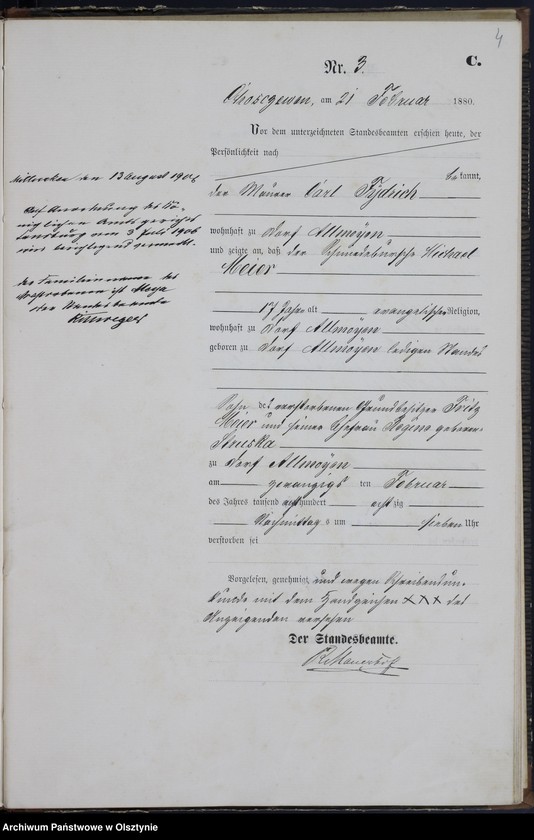 4
C.
Nr. 3.
am 21 Februar 1880.
Vor dem unterzeichneten Standesbeamten erschien heute, der
Persönlichkeit nach
bekannt,
der Maurer Carl
wohnhaft zu Dorf Allmoyen
und zeigte an, daß der Michael
Meier
17 Jahre alt evangelischer Religion,
wohnhaft zu Dorf Allmoyen
geboren zu Dorf Allmoyen ledigen Standes
Sohn des verstorbenen Grundbesitzer Fritz
Meier und seiner Ehefrau Regine geboren
zu Dorf Allmoyen
am ten Februar
des Jahres tausend achthundert achtzig
Nachmittags um sieben Uhr
verstorben sei
Vorgelesen, genehmigt und wegen Schreibensun-
kunde mit dem Handzeichen XXX des
Anzeigenden versehen
Der Standesbeamte.
den 13 August 1906
Auf Anordnung des Kö-
niglichen Amtsgerichts
vom 3 Juli 1906
der Familienname des
Verstorbenen ist
der Standesbeamte
Archiwum Państwowe w Olsztynie